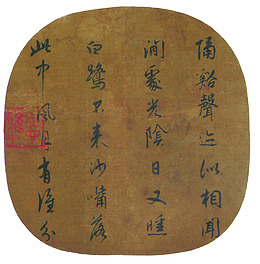 隔谿聲似相聞
閒處光陰日又曛
白鷺不來沙嘴落
此中風月有誰分